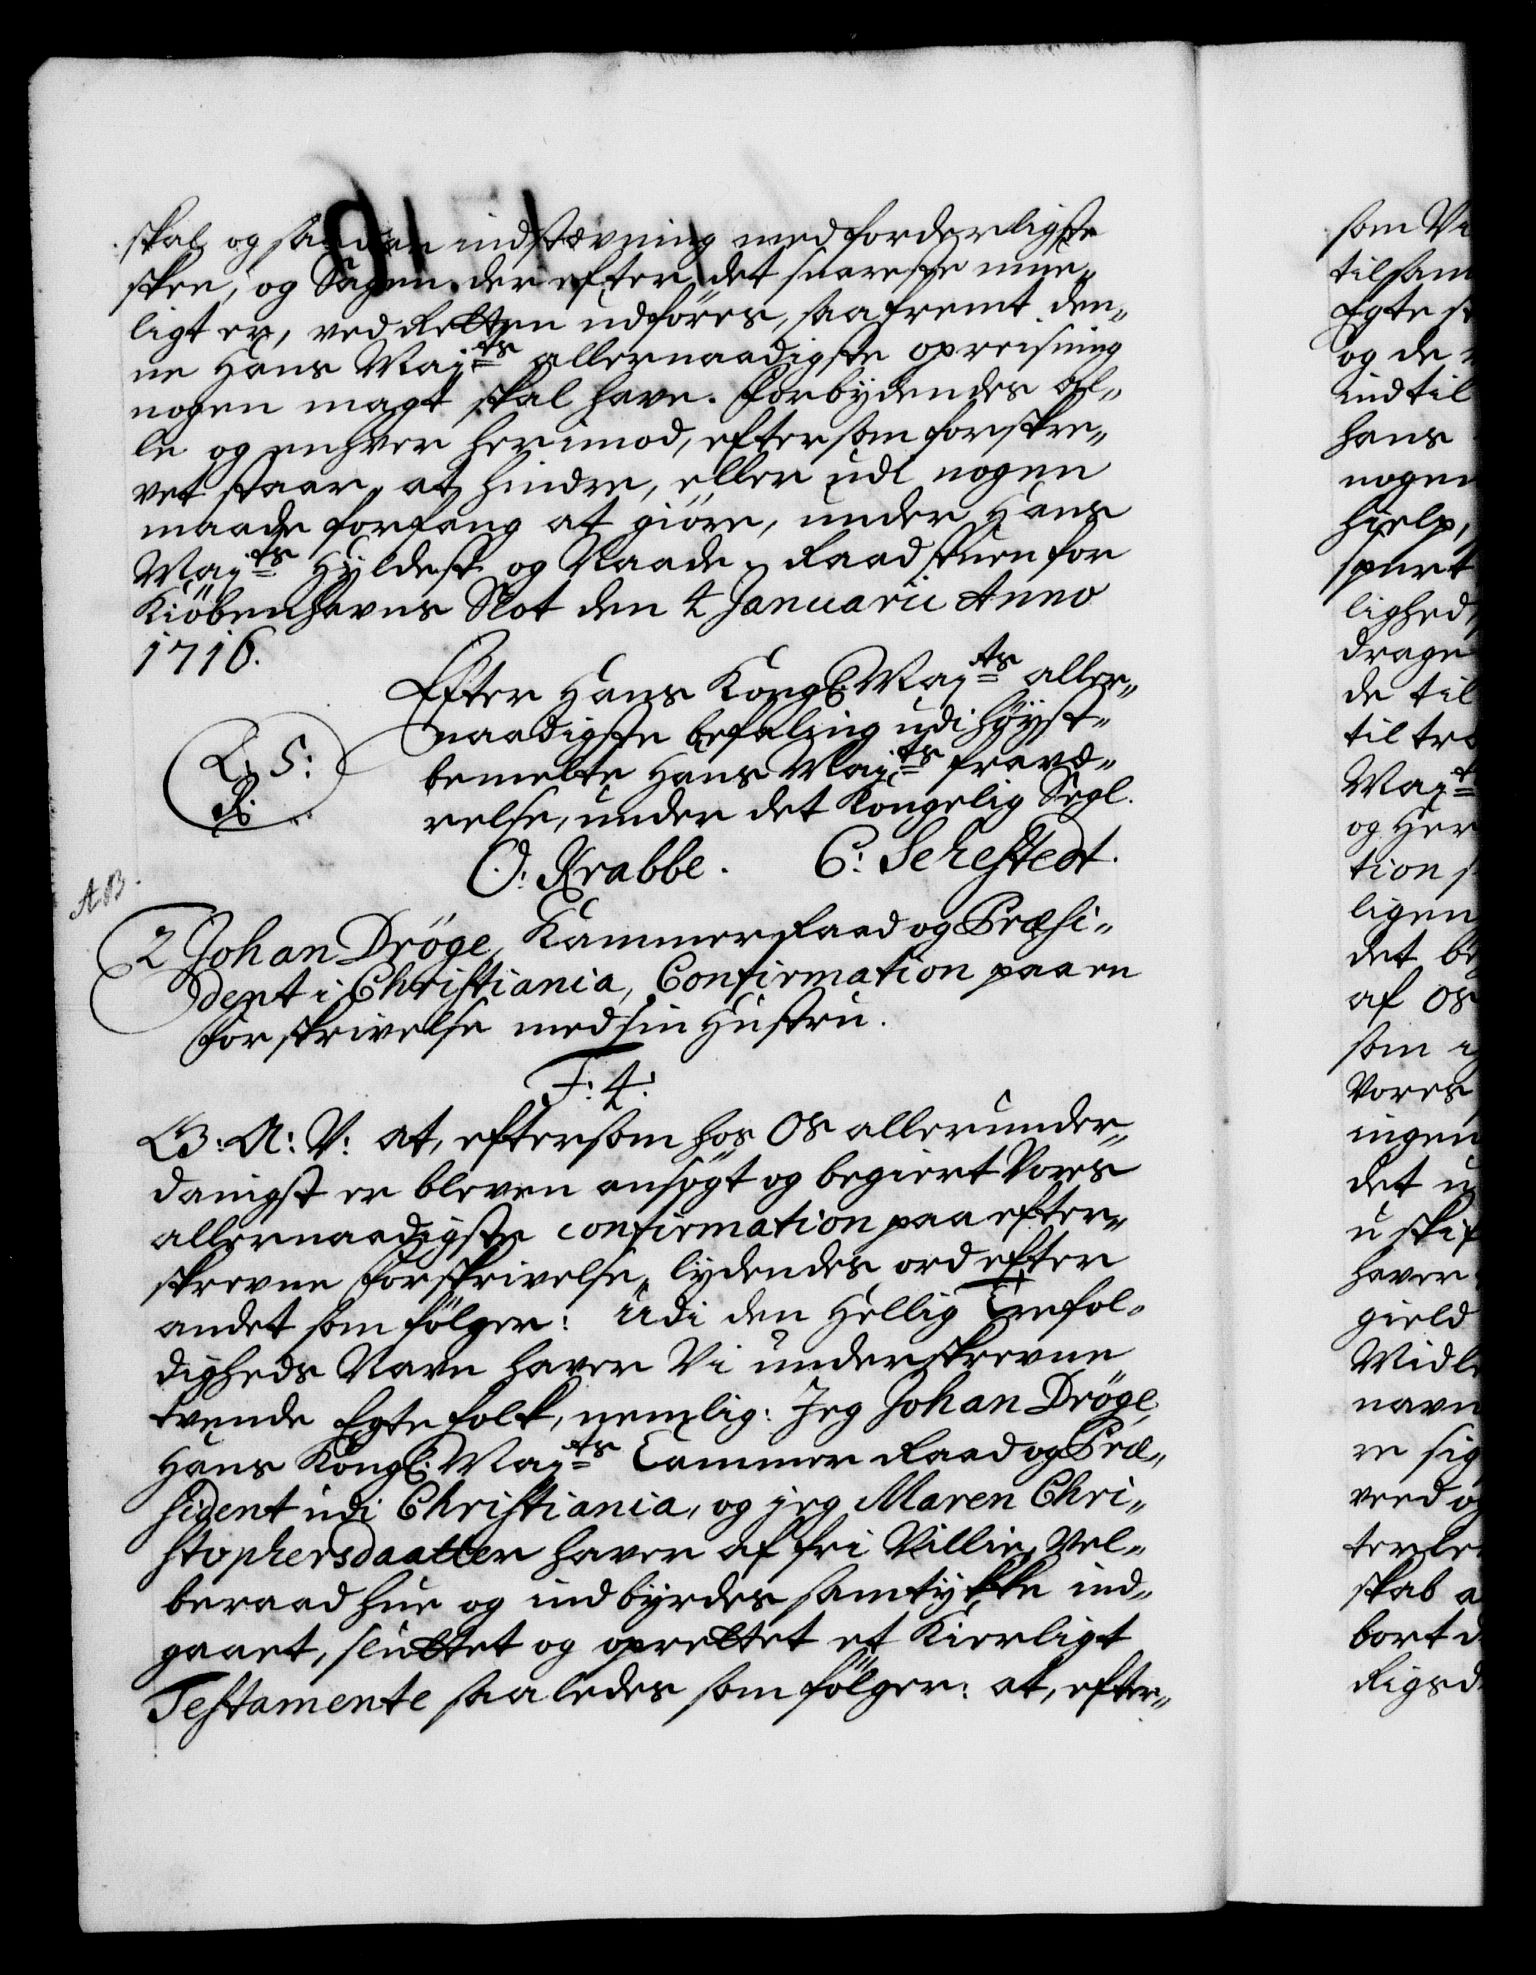 skal og saadan indstævning med forderligste
skee, og Sagen der efter det snareste mue„
ligt er, ved Retten udføres, saafremt den„
ne Hans May:ts allernaadigste opreisning
nogen magt skal have. Forbydendes al„
le og enhver herimod, eftersom forskre„
vet staar, at hindre, eller udi nogen
maade forfang at giöre, under Hans
May:ts Hyldest og Naade. Raadstuen for
Kiöbenhavns Slot den 4 Januarii Anno
1716.
Efter Hans Kongl: May:ts aller„
naadigste befaling udi høyst„
bemelte Hans May:ts fravæ„
relse, under det Kongelig Segl.
L. S:
R.
O: Krabbe. C: Sehestedt.
AB.
2 Johan Dröge, Kammer Raad og Præsi„
dent i Christiania, Confirmation paa en
forskrivelse med sin Hustru.
F: 4:
G: A: V: at, eftersom hos Os allerunder„
danigst er bleven ansøgt og begiert Vores
allernaadigste confirmation paa efter„
skrevne forskrivelse, lydendes ord efter
andet som fölger: Udi den Hellig Trefol„
digheds Navn haver Vi underskrevne
tvende Egtefolk, nemlig: Jeg Johan Dröge,
Hans Kongl: May:ts Cammer Raad og Præ„
sident udi Christiania, og jeg Maren Chri„
stophersdaatter haver af fri Villie, Vel„
beraad hue og indbyrdes samtykke ind„
gaaet, sluttet og oprettet et Kierligt
Testamente saaledes som fölger: at, efter„
som Vi
tilsam
Egte st
og de
indtil
hans
nogen
hielp,
spurt
lighed
drage
de til
til tra
May:t
og Her
tion s
ligen
det be
af Os
som i
Vores
ingen
det u
uskif
haver
gield
Midle
navn
re sig
veed og
terle
skab a
bort d
Rigsd